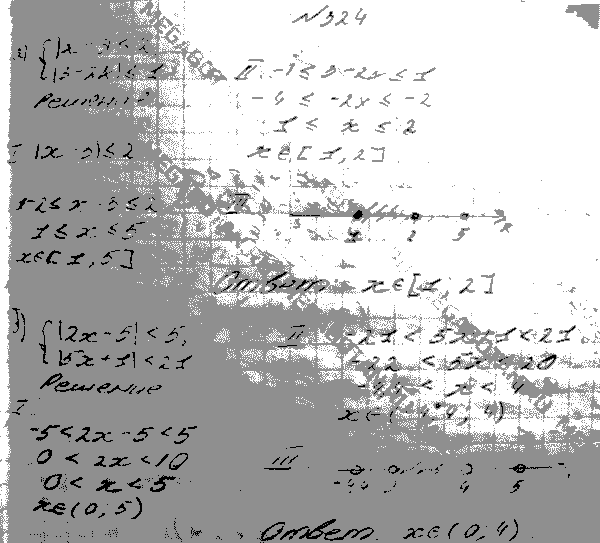 N 924
а) { |x - 3| ≤ 2
|3 - 2x| ≤ 1
Решение
I |x - 3| ≤ 2
-2 ≤ x - 3 ≤ 2
1 ≤ x ≤ 5
x ∈ [1, 5]
II -1 ≤ 3 - 2x ≤ 1
-4 ≤ -2x ≤ -2
1 ≤ x ≤ 2
x ∈ [1, 2]
III
1 2 5 x
Ответ x ∈ [1, 2]
{ |2x - 5| < 5,
|5x + 1| < 21
Решение
I
-5 < 2x - 5 < 5
0 < 2x < 10
0 < x < 5
x ∈ (0, 5)
II -21 < 5x + 1 < 21
-22 < 5x < 20
-4,4 < x < 4
x ∈ (-4,4; 4)
III
-4,4 4 5
Ответ x ∈ (0, 4)